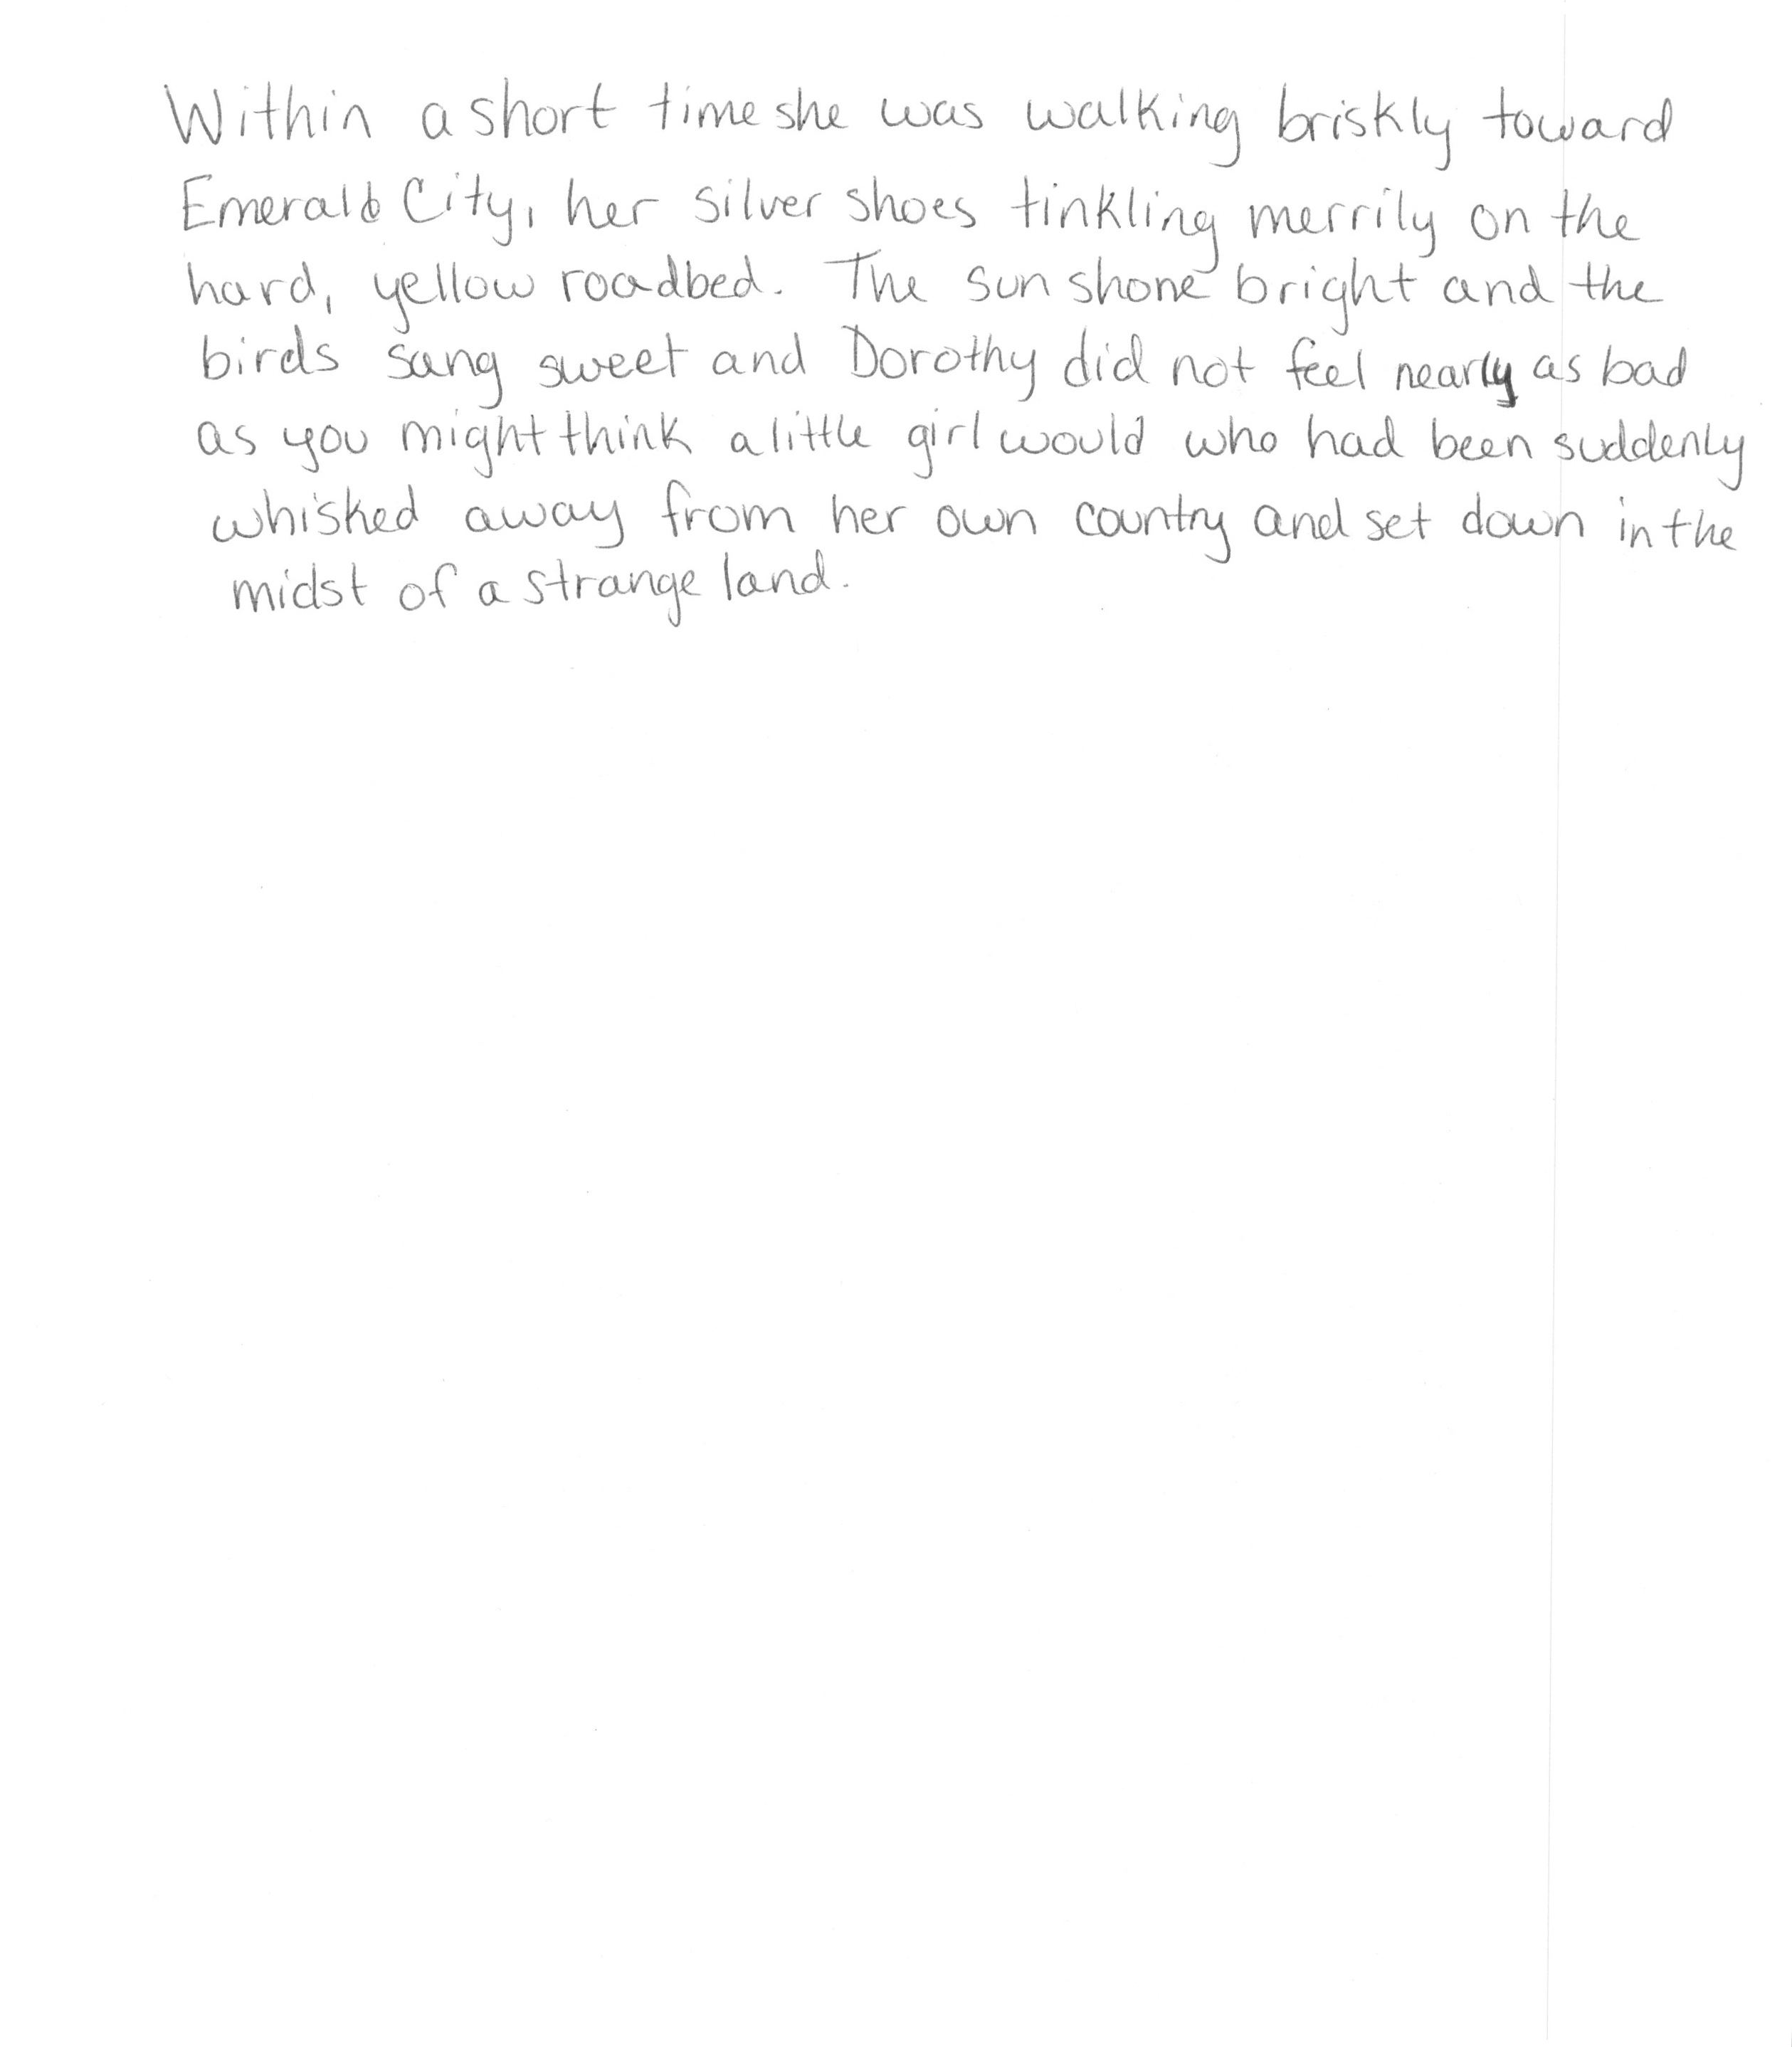 Within a short time she was walking briskly toward
Emerald City, her silver shoes tinkling merrily on the
hard, yellow roadbed. The sun shone bright and the
birds sang sweet and Dorothy did not feel nearly as bad
as you might think a little girl would who had been suddenly
whisked away from her own country and set down in the
midst of a strange land.